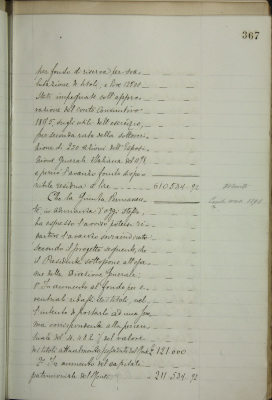 367
per fondo di riserva per sva-
lutazione di titoli, e Lire 12800
State impegnate coll'appro-
vazione del Conto Consuntivo
1895, sugli utili dell'esercizio,
per seconda rata della sottoscri-
zione di 220 azioni dell'Espo-
sizione Generale Italiana del 98
e perciò l'avanzo fondo dispo-
nibile residua a lire 610,534.92
Che la Giunta Permanen-
te, in adunanza d'oggi stesso,
ha espresso l'avviso potersi ri-
partire l'avanzo sovraindicato
secondo il progetto seguente, da
S. Presidente sottopone all'esa-
me della Direzione Generale:
1° In aumento al fondo per e-
ventuali ribassi sui titoli, nel-
l'intento di portarlo ad una som-
ma corrispondente alla percen-
tuale del sul valore
dei titoli attualmente 121.000
2° In aumento del capitale
patrimoniale del 211,534.92